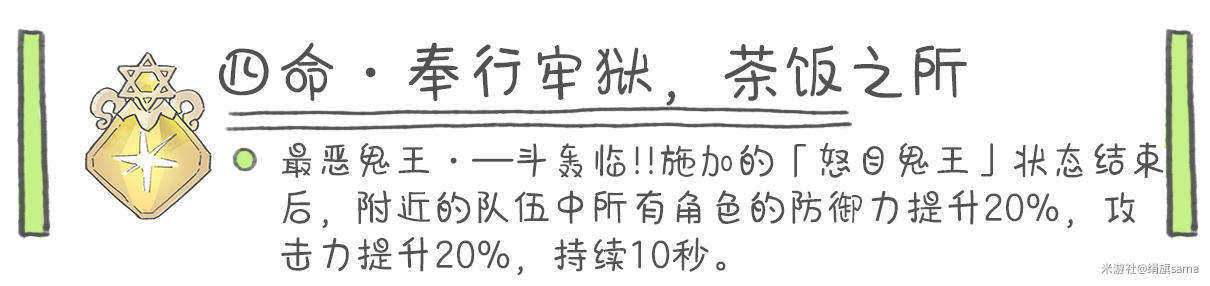 四命·奉行牢狱，茶饭之所
最恶鬼王·一斗轰临!!施加的「怒目鬼王」状态结束
后，附近的队伍中所有角色的防御力提升20%，攻
击力提升20%，持续10秒。
米游社@绢旗sama